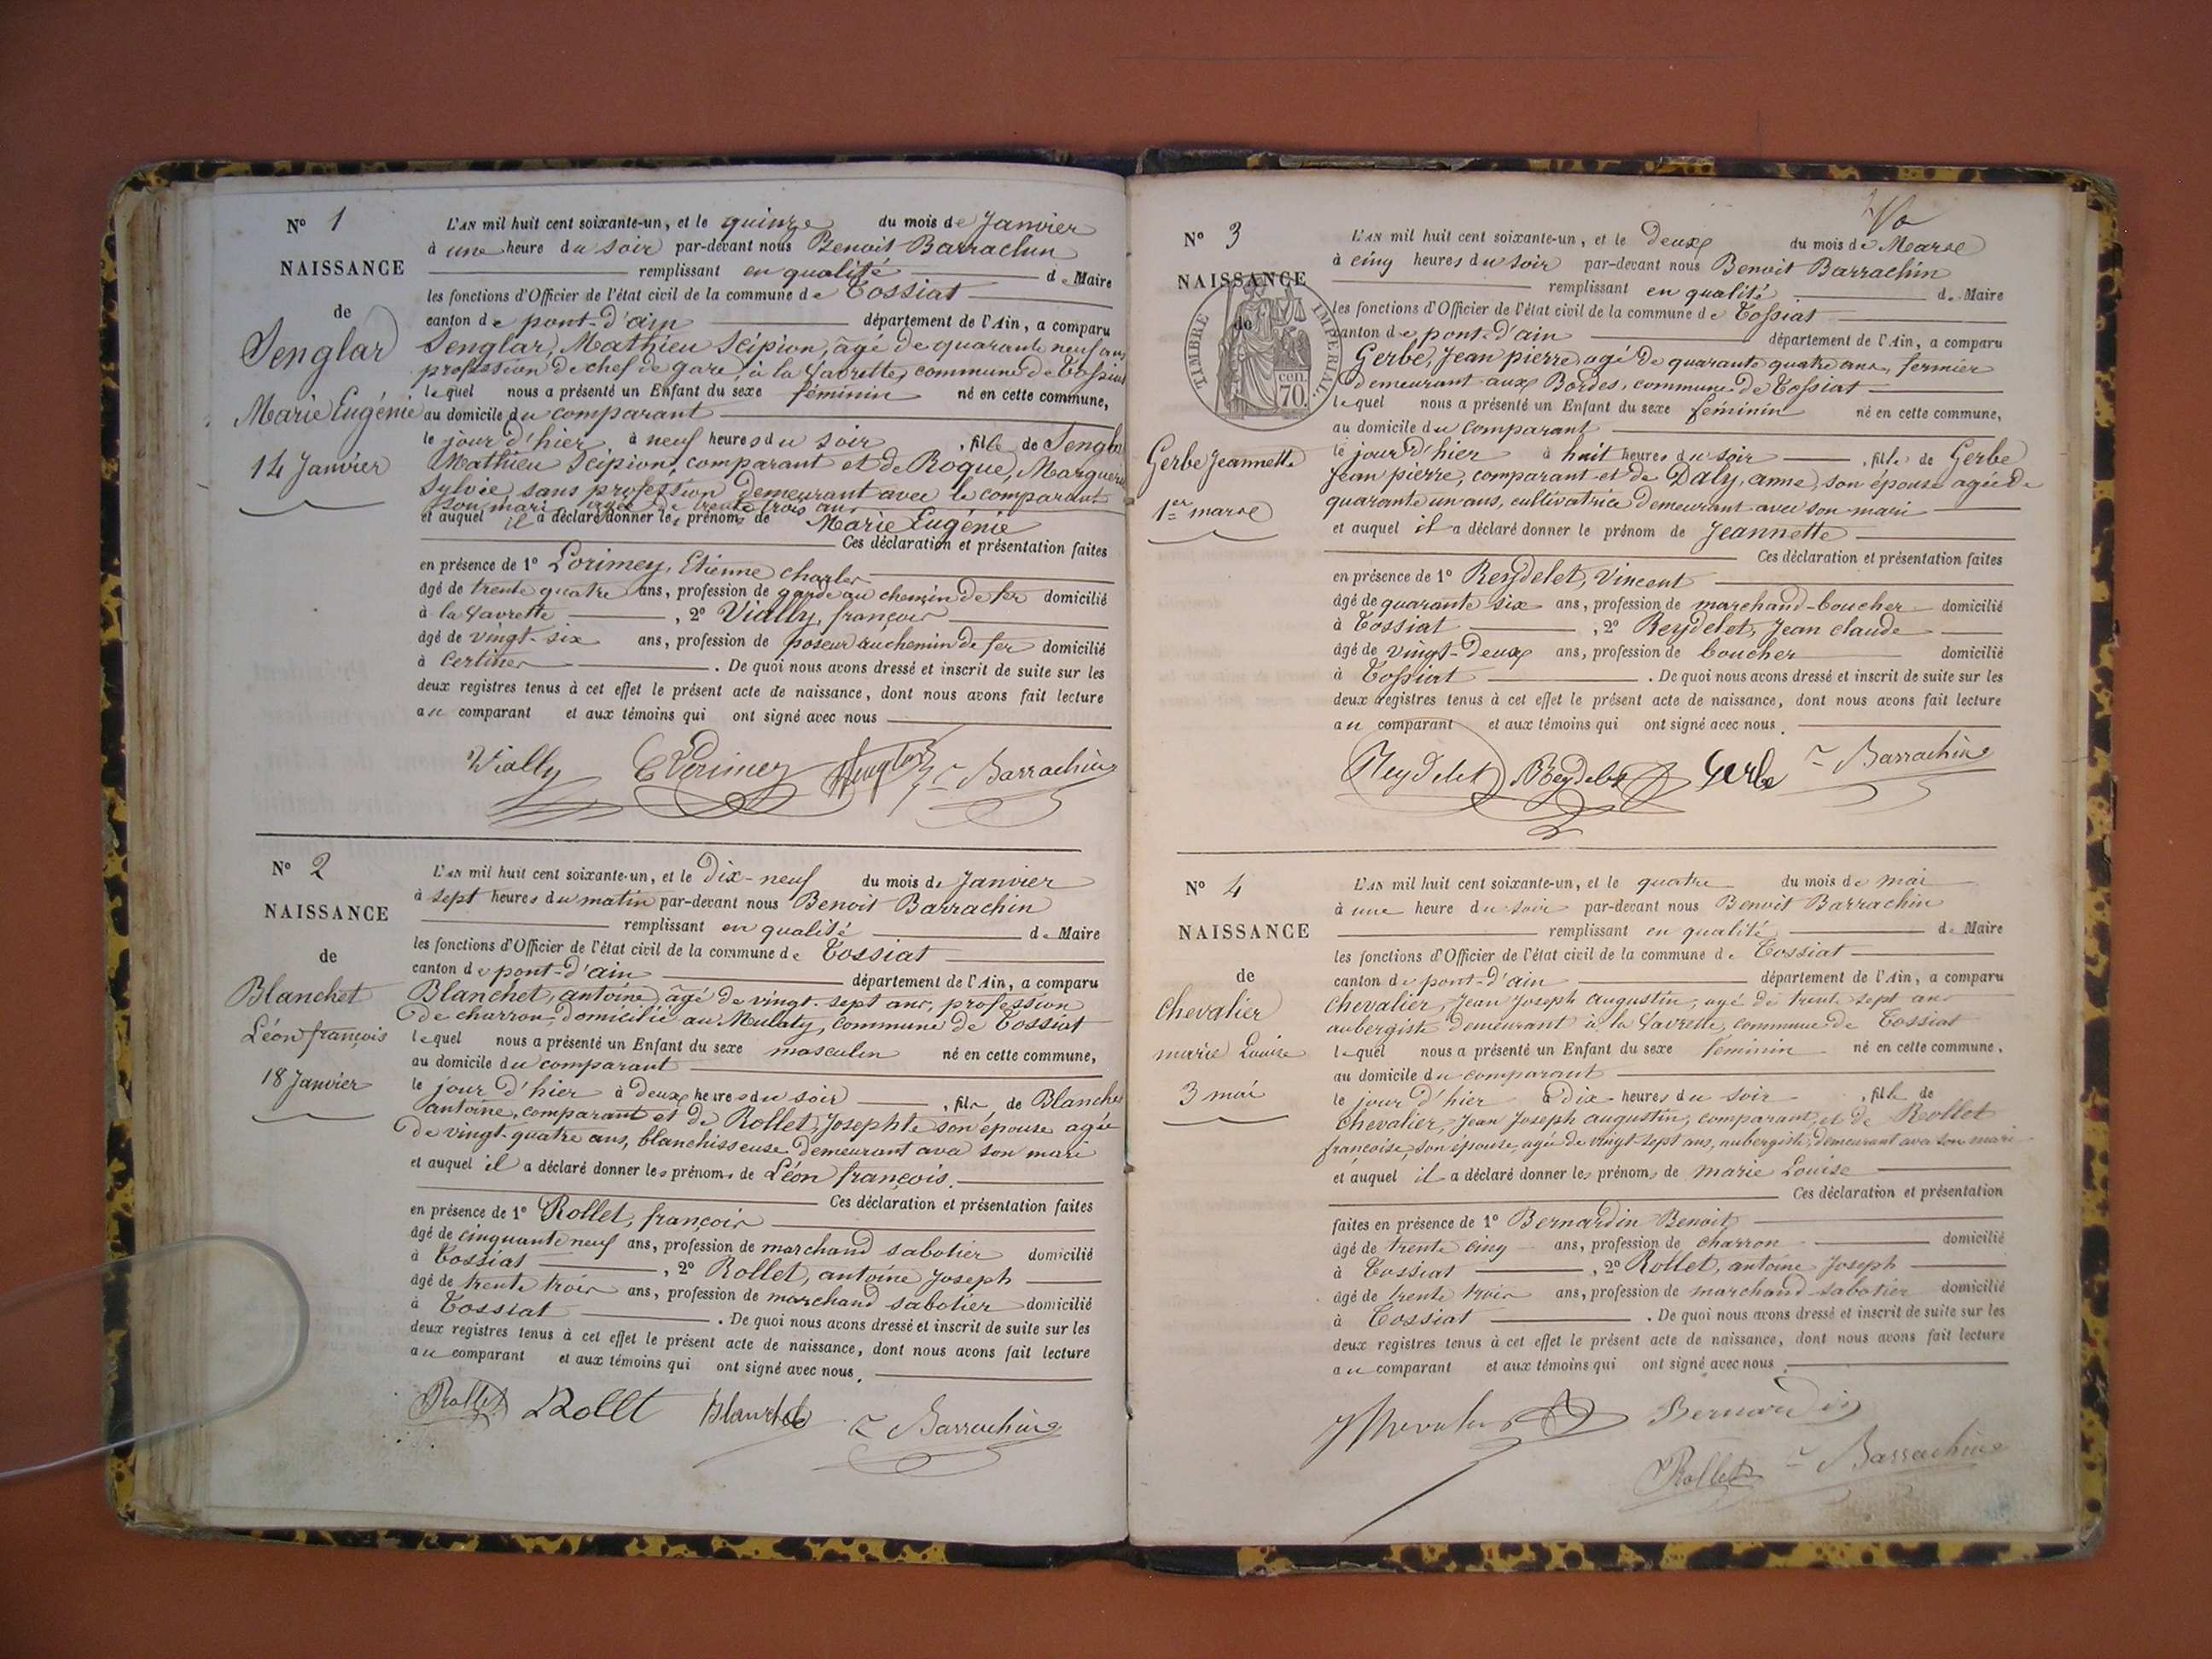 N° 1
L'AN mil huit cent soixante-un, et le quinze du mois de Janvier
à une heure du soir par-devant nous Benoit Barrachin
remplissant en qualité de Maire
NAISSANCE
les fonctions d'Officier de l'état civil de la commune de Tossiat
de
canton de pont-d'ain département de l'Ain, a comparu
Senglar
Senglar, Mathieu Scipion, âgé de quarante neuf ans
profession de chef de gare, à la Vavrette, commune de Tossiat
lequel nous a présenté un Enfant du sexe féminin né en cette commune,
Marie Eugénie
au domicile du comparant
le jour d'hier à neuf heures du soir, fille de Sengla
14 Janvier
Mathieu Scipion, comparant et de Roque, Margueri
Sylvie, sans profession demeurant avec le comparant
son mari, agée de trente trois ans
et auquel il a déclaré donner les prénoms de Marie Eugénie
Ces déclaration et présentation faites
en présence de 1° Lorimey, Etienne Charles
âgé de trente quatre ans, profession de garde au chemin de fer domicilié
à la Vavrette, 2° Vially, françois
âgé de vingt-six ans, profession de poseur au chemin de fer domicilié
à Certines. De quoi nous avons dressé et inscrit de suite sur les
deux registres tenus à cet effet le présent acte de naissance, dont nous avons fait lecture
au comparant et aux témoins qui ont signé avec nous
Vially E Lorimey Senglar Barrachin
N° 2
L'AN mil huit cent soixante-un, et le Dix-neuf du mois de Janvier
à sept heures du matin par-devant nous Benoit Barrachin
NAISSANCE
remplissant en qualité de Maire
les fonctions d'Officier de l'état civil de la commune de Tossiat
de
canton de pont-d'ain département de l'Ain, a comparu
Blanchet
Blanchet, antoine, âgé de vingt-sept ans, profession
de charron domicilié au Mulaty, commune de Tossiat
Léon françois
lequel nous a présenté un Enfant du sexe masculin né en cette commune,
au domicile du comparant
18 Janvier
le jour d'hier à deux heures du soir, fils de Blanchet
antoine, comparant et de Rollet, Josephte son épouse agée
de vingt-quatre ans, blanchisseuse demeurant avec son mari
et auquel il a déclaré donner les prénoms de Léon françois.
Ces déclaration et présentation faites
en présence de 1° Rollet, françois
âgé de cinquante neuf ans, profession de marchand sabotier domicilié
à Tossiat, 2° Rollet, antoine Joseph
âgé de trente trois ans, profession de marchand sabotier domicilié
à Tossiat. De quoi nous avons dressé et inscrit de suite sur les
deux registres tenus à cet effet le présent acte de naissance, dont nous avons fait lecture
au comparant et aux témoins qui ont signé avec nous.
Rollet Rollet Blanchet Barrachin
N° 3
L'AN mil huit cent soixante-un, et le deux du mois de Mars
à cinq heures du soir par-devant nous Benoit Barrachin
NAISSANCE
remplissant en qualité de Maire
TIMBRE IMPÉRIAL
cen. 70.
les fonctions d'Officier de l'état civil de la commune de Tossiat
de
canton de pont-d'ain département de l'Ain, a comparu
Gerbe, Jean pierre, agé de quarante quatre ans, fermier
demeurant aux Bordes, commune de Tossiat
lequel nous a présenté un Enfant du sexe féminin né en cette commune,
au domicile du comparant
Gerbe Jeannette
le jour d'hier à huit heures du soir, fille de Gerbe
Jean pierre, comparant et de Daly, anne, son épouse agée de
1er mars
quarante un ans, cultivatrice demeurant avec son mari
et auquel il a déclaré donner le prénom de Jeannette
Ces déclaration et présentation faites
en présence de 1° Reydelet, Vincent
âgé de quarante six ans, profession de marchand-boucher domicilié
à Tossiat, 2° Reydelet, Jean claude
âgé de vingt-deux ans, profession de boucher domicilié
à Tossiat. De quoi nous avons dressé et inscrit de suite sur les
deux registres tenus à cet effet le présent acte de naissance, dont nous avons fait lecture
au comparant et aux témoins qui ont signé avec nous.
Reydelet Reydelet Gerbe Barrachin
N° 4
L'AN mil huit cent soixante-un, et le quatre du mois de mai
à une heure du soir par-devant nous Benoit Barrachin
NAISSANCE
remplissant en qualité de Maire
les fonctions d'Officier de l'état civil de la commune de Tossiat
de
canton de pont-d'ain département de l'Ain, a comparu
chevalier
chevalier, Jean Joseph augustin, agé de trente sept ans
aubergiste demeurant à la Vavrette, commune de Tossiat
marie Louise
lequel nous a présenté un Enfant du sexe féminin né en cette commune,
au domicile du comparant
3 mai
le jour d'hier à dix heures du soir, fille de
chevalier, Jean Joseph augustin, comparant, et de Rollet
francoise, son épouse, agée de vingt-sept ans, aubergiste, demeurant avec son mari
et auquel il a déclaré donner les prénoms de marie Louise
Ces déclaration et présentation
faites en présence de 1° Bernardin Benoit
âgé de trente cinq ans, profession de charron domicilié
à Tossiat, 2° Rollet, antoine Joseph
âgé de trente trois ans, profession de marchand sabotier domicilié
à Tossiat. De quoi nous avons dressé et inscrit de suite sur les
deux registres tenus à cet effet le présent acte de naissance, dont nous avons fait lecture
au comparant et aux témoins qui ont signé avec nous.
Chevalier Bernardin
Rollet Barrachin